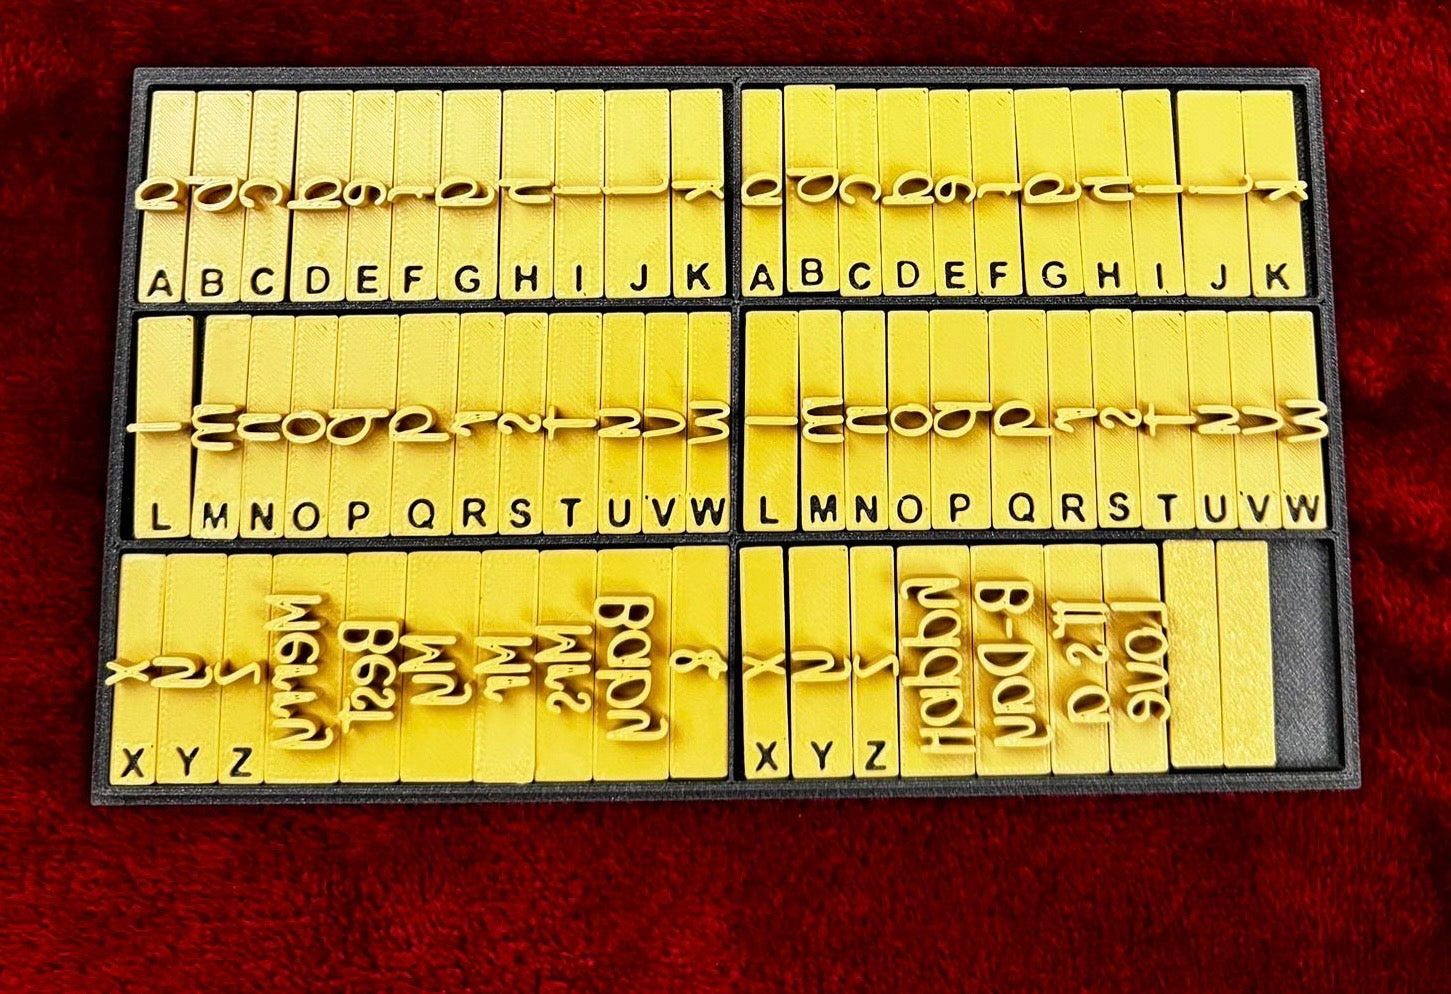 a b c d e f g h i j k a b c d e f g h i j k
A B C D E F G H I J K A B C D E F G H I J K
l m n o p q r s t u v w l m n o p q r s t u v w
L M N O P Q R S T U V W L M N O P Q R S T U V W
x y z Merry Best My Mr Mrs Baby & x y z Happy B-Day It's a Love
X Y Z X Y Z